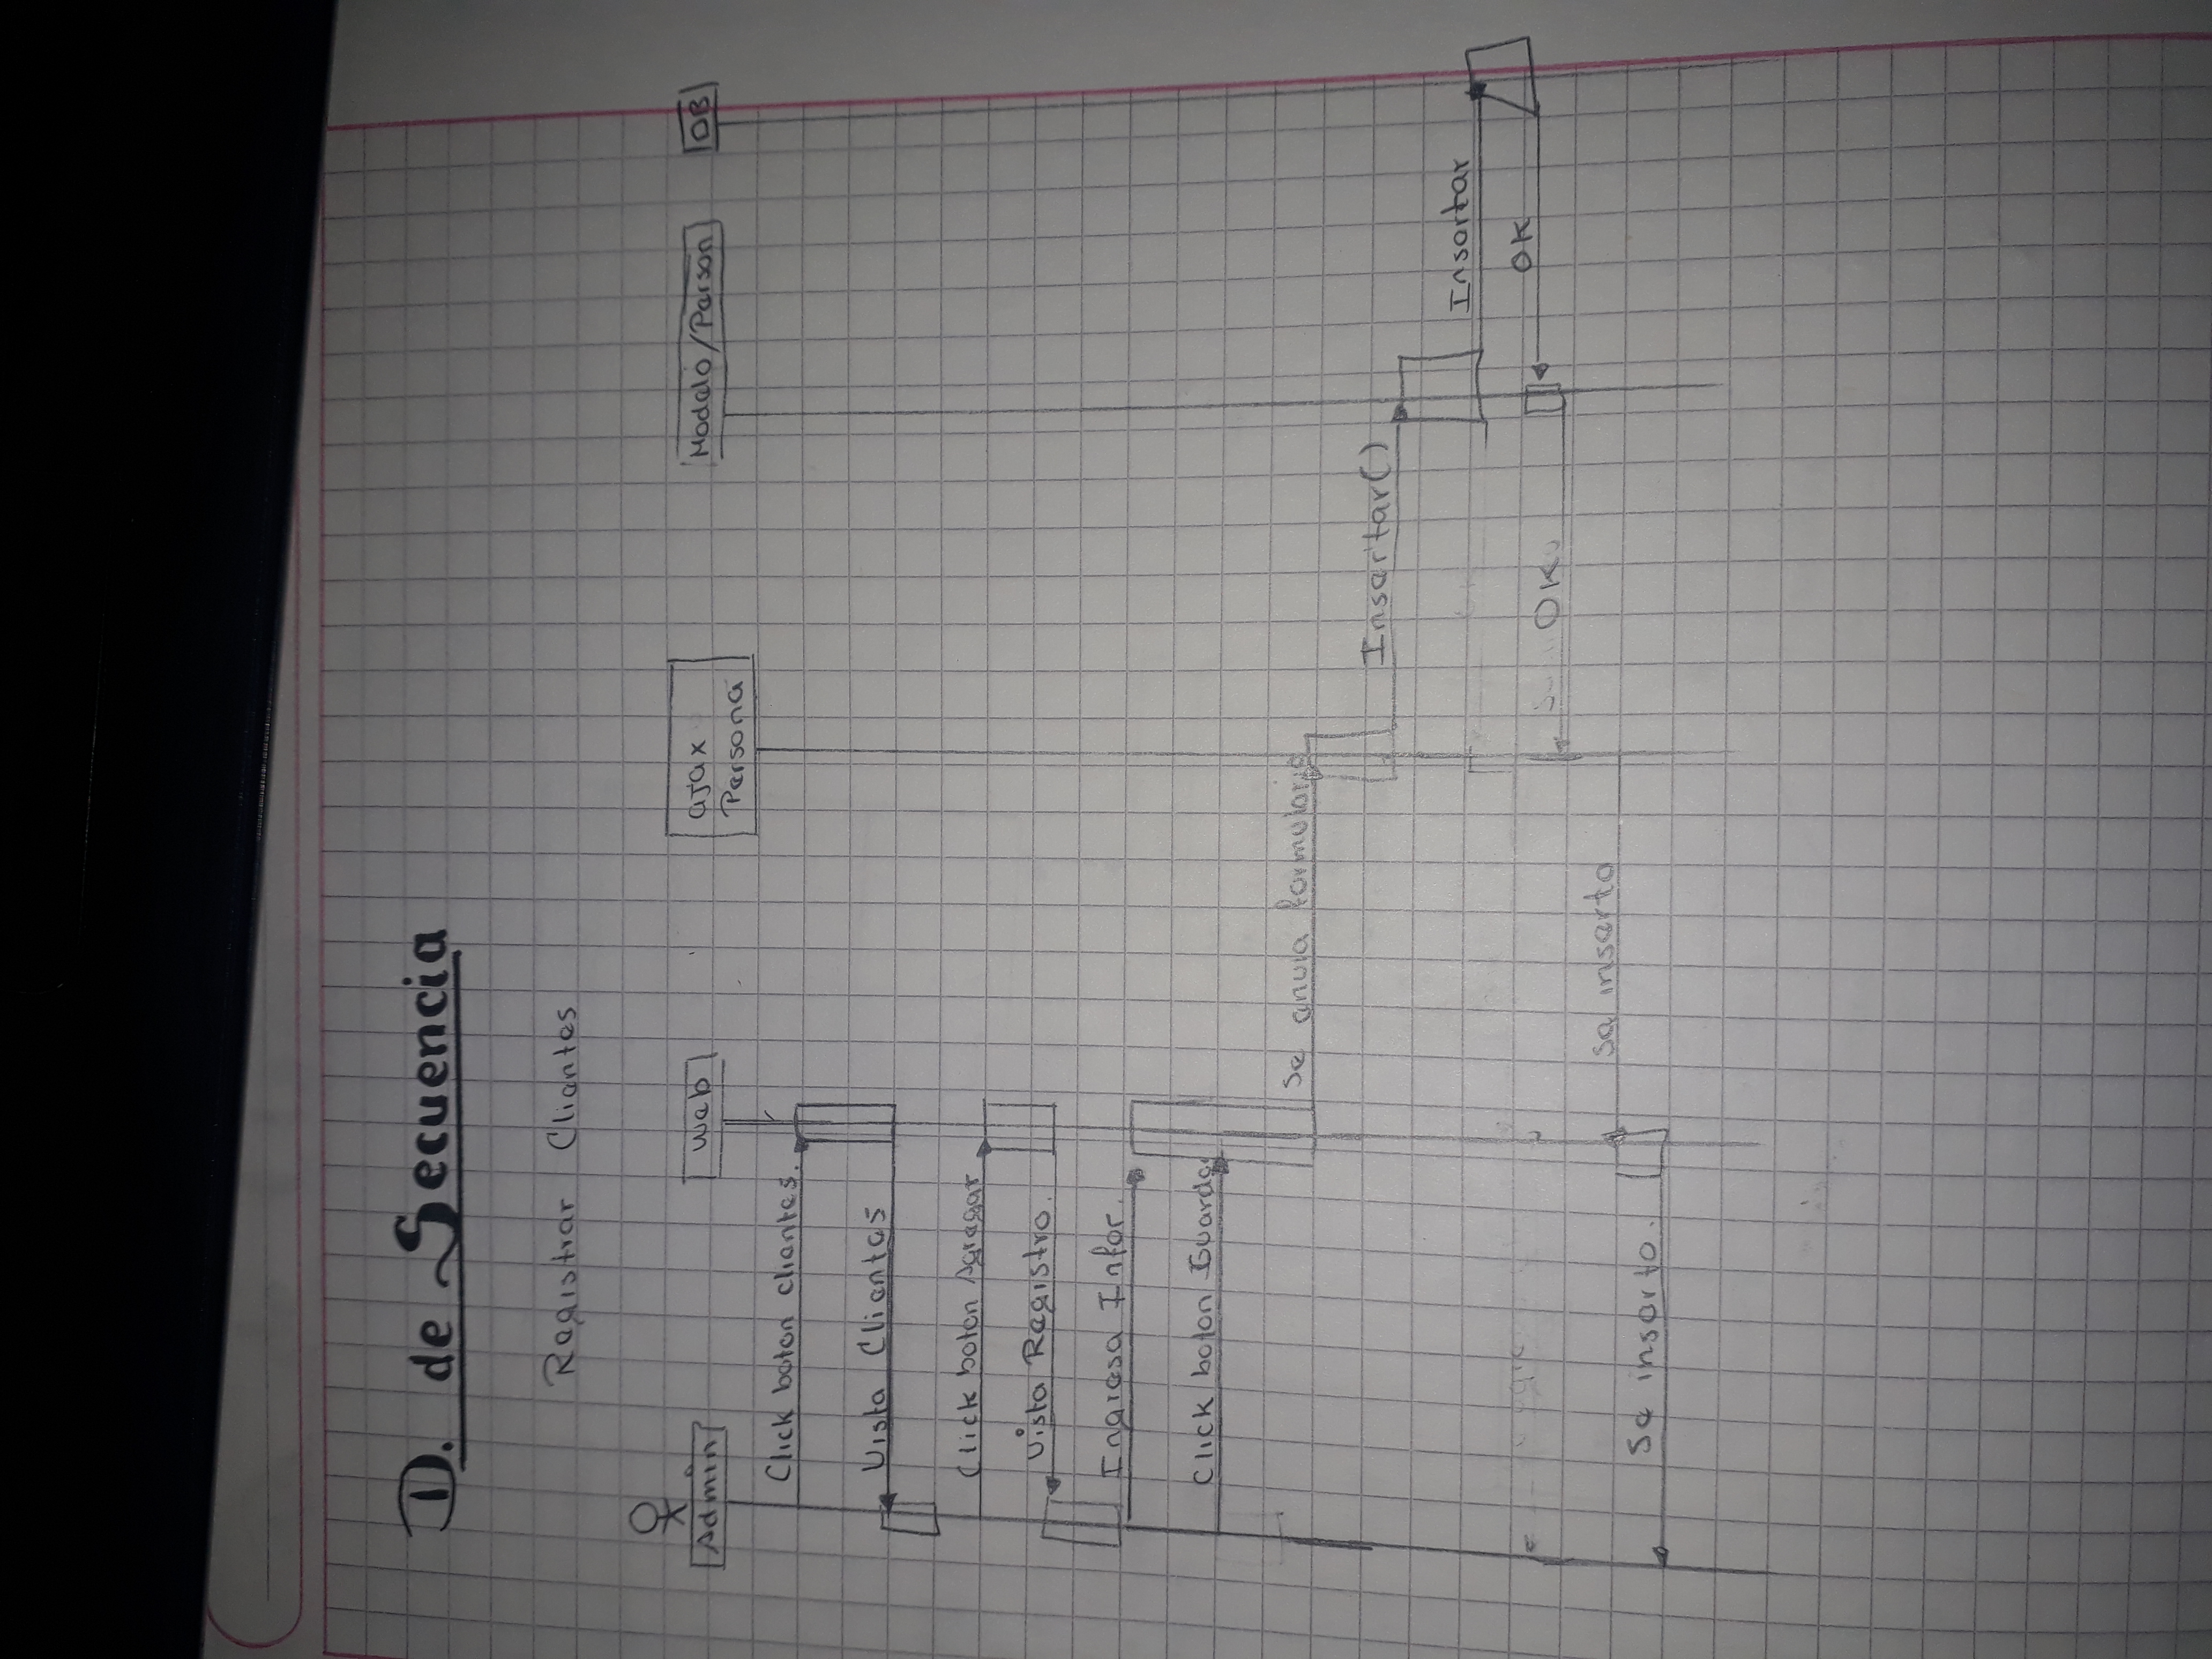 D. de Secuencia
Registrar Clientes
Admin
Web
ajax
Persona
Modelo/Person
DB
Click boton clientes.
Vista Clientes
Click boton Agregar
Vista Registro.
Ingresa Infor.
Click boton Guardar
Se envia formulario
Insertar()
Insertar
OK
OK
Se inserto
Se inserto.